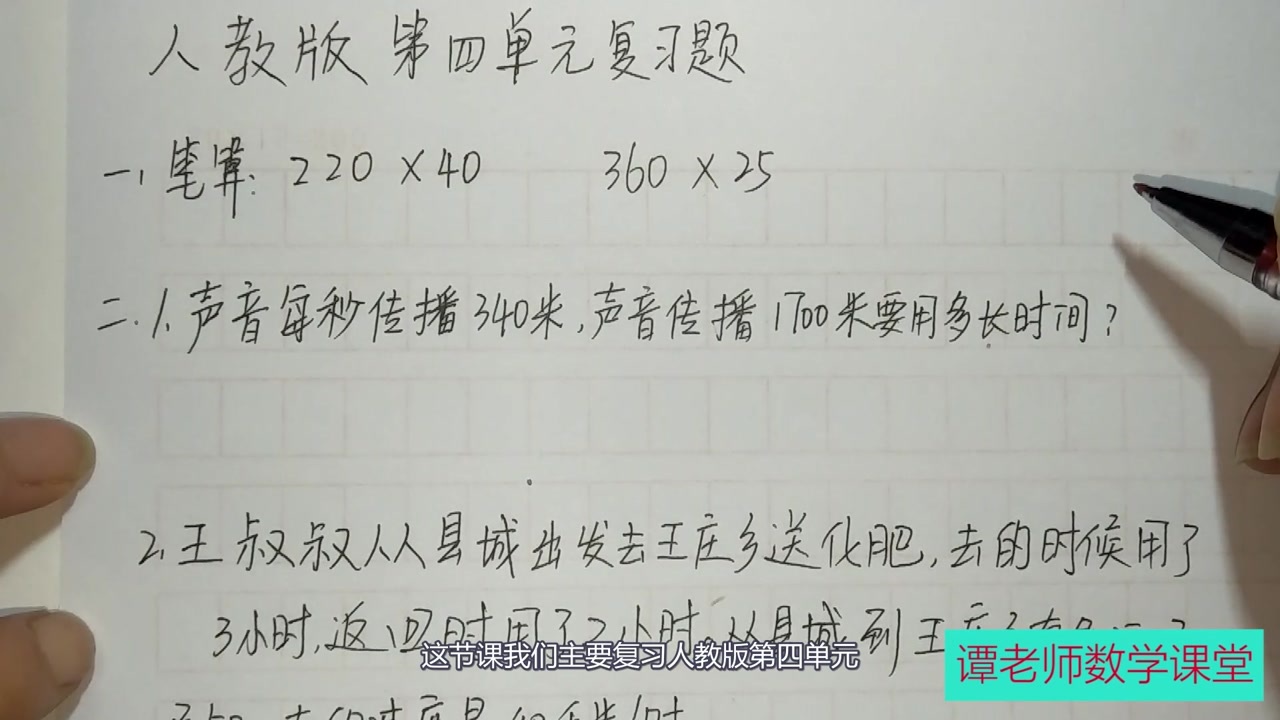 人教版 第四单元复习题
一、笔算: 220×40 360×25
二.1.声音每秒传播340米,声音传播1700米要用多长时间?
2.王叔叔从县城出发去王庄乡送化肥,去的时候用了
3小时,返回时用了2小时,从县城到王庄
这节课我们主要复习人教版第四单元
谭老师数学课堂